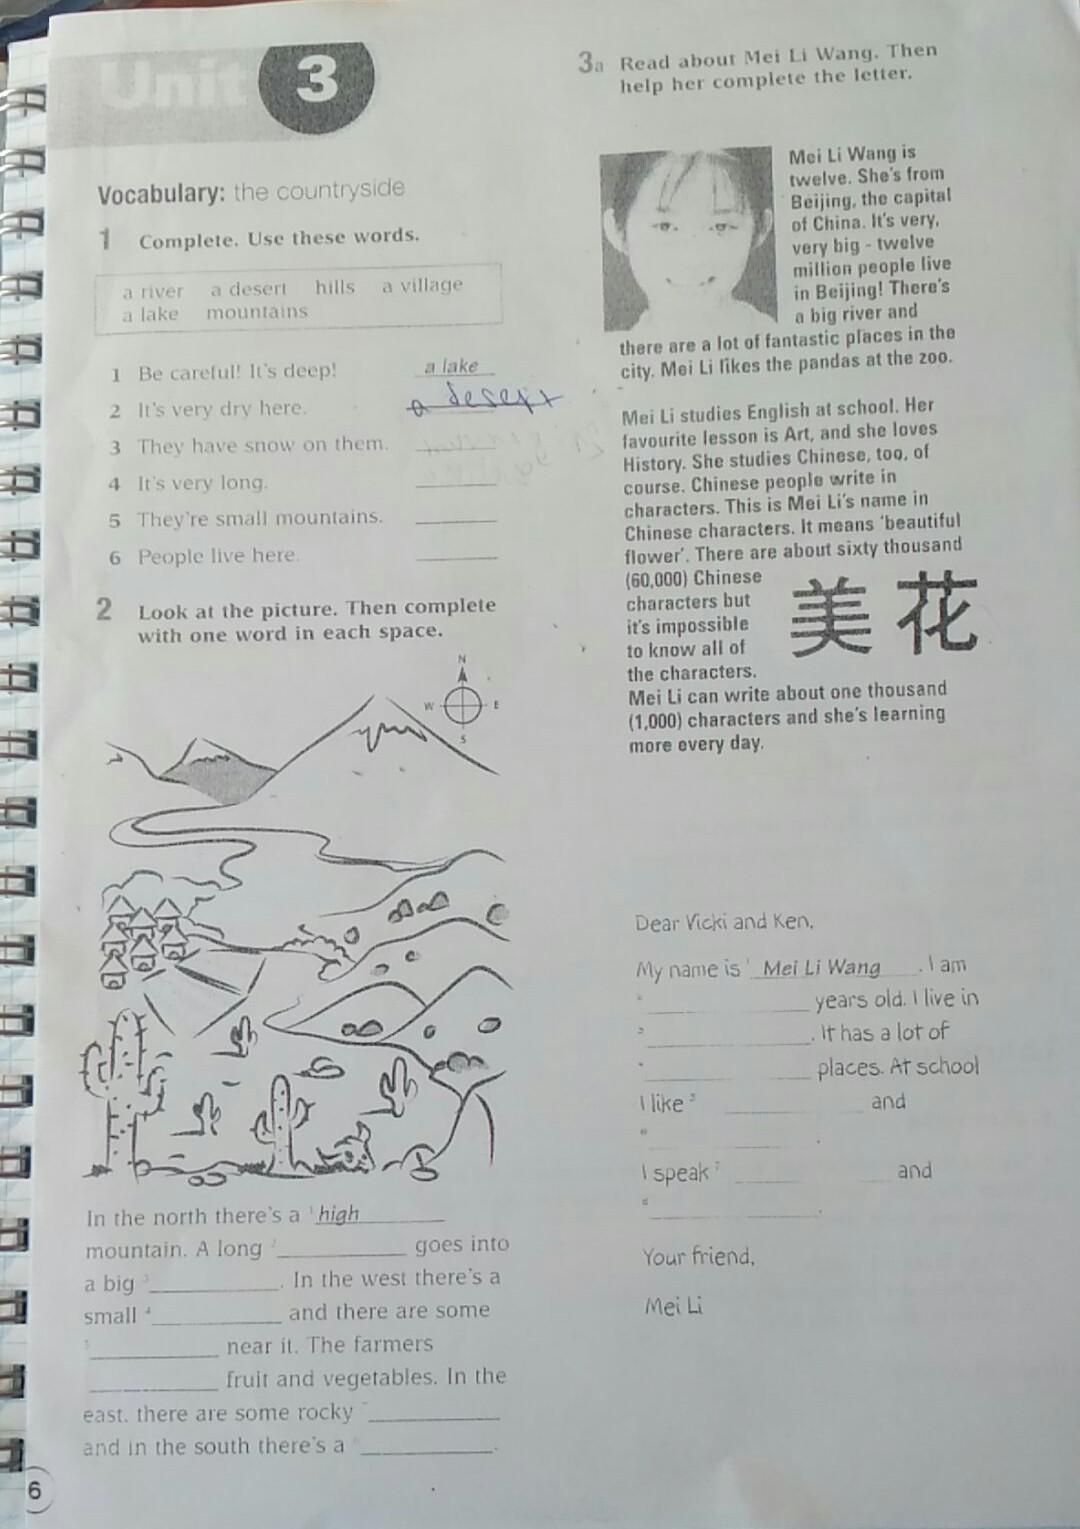 Unit 3
Vocabulary: the countryside
1 Complete. Use these words.
a river a desert hills a village
a lake mountains
1 Be careful! It's deep! a lake
2 It's very dry here. a desert
3 They have snow on them.
4 It's very long.
5 They're small mountains.
6 People live here.
2 Look at the picture. Then complete
with one word in each space.
N
W E
S
In the north there's a 1 high
mountain. A long 2 goes into
a big 3 . In the west there's a
small 4 and there are some
5 near it. The farmers
fruit and vegetables. In the
east, there are some rocky
and in the south there's a .
6
3a Read about Mei Li Wang. Then
help her complete the letter.
Mei Li Wang is
twelve. She's from
Beijing, the capital
of China. It's very,
very big - twelve
million people live
in Beijing! There's
a big river and
there are a lot of fantastic places in the
city. Mei Li likes the pandas at the zoo.
Mei Li studies English at school. Her
favourite lesson is Art, and she loves
History. She studies Chinese, too, of
course. Chinese people write in
characters. This is Mei Li's name in
Chinese characters. It means 'beautiful
flower'. There are about sixty thousand
(60,000) Chinese
characters but
it's impossible
to know all of
the characters.
美花
Mei Li can write about one thousand
(1,000) characters and she's learning
more every day.
Dear Vicki and Ken,
My name is 1 Mei Li Wang . I am
2 years old. I live in
3 . It has a lot of
places. At school
I like 5 and
.
I speak 7 and
.
Your friend,
Mei Li